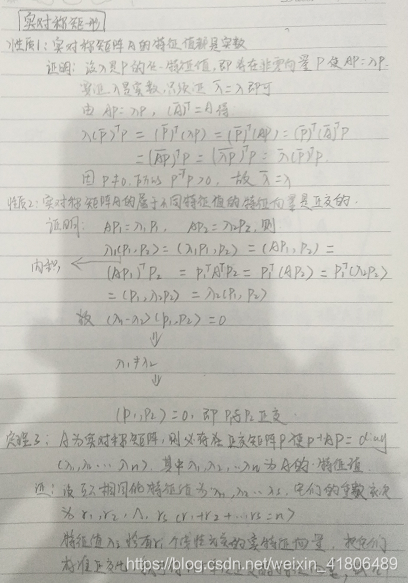 实对称矩形
性质1: 实对称矩阵A的特征值都是实数
证明: 设λ是P的任一特征值, 即存在非零向量P使AP=λP.
要证λ是实数, 只须证 λ̄=λ即可
由 AP=λP, (Ā)ᵀ=A 得
λ(P̄)ᵀP = (P̄)ᵀ(λP) = (P̄)ᵀ(AP) = (P̄)ᵀ(Ā)ᵀP
= (ĀP̄)ᵀP = (λ̄P̄)ᵀP = λ̄(P̄)ᵀP.
因P≠0, 所以 P̄ᵀP>0, 故 λ̄=λ
性质2: 实对称矩阵A的属于不同特征值的特征向量是正交的.
证明: AP₁=λ₁P₁, AP₂=λ₂P₂, 则
λ₁(P₁,P₂) = (λ₁P₁,P₂) = (AP₁,P₂) =
内积 (AP₁)ᵀP₂ = P₁ᵀAᵀP₂ = P₁ᵀ(AP₂) = P₁ᵀ(λ₂P₂)
= (P₁,λ₂P₂) = λ₂(P₁,P₂)
故 (λ₁-λ₂)(P₁,P₂)=0
⇓
λ₁≠λ₂
⇓
(P₁,P₂)=0, 即P₁与P₂正交.
定理3: A为实对称矩阵, 则必存在正交矩阵P使P⁻¹AP=diag
(λ₁,λ₂…λn), 其中λ₁,λ₂,…λn为A的特征值
证: 设互不相同的特征值为λ₁,λ₂…λs, 它们的重数依次
为r₁,r₂,…rs (r₁+r₂+…rs=n)
特征值λi恰有ri个线性无关的实特征向量, 把它们
https://blog.csdn.net/weixin_41806489